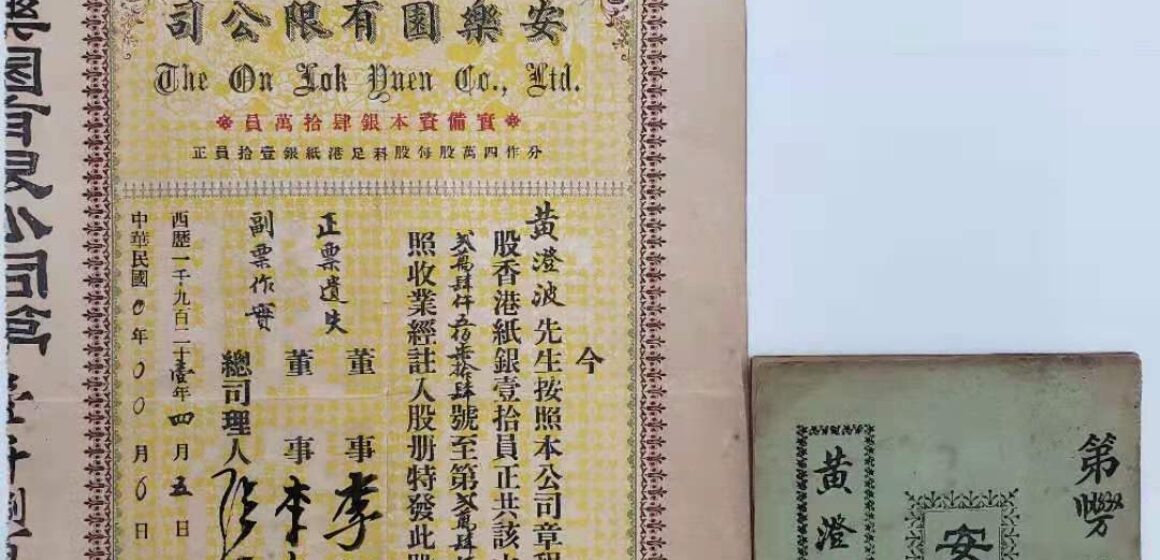 安樂園有限公司
The On Lok Yuen Co., Ltd.
實備資本銀肆拾萬員
分作四萬股每股科足港紙銀壹拾員正
今
黃澄波先生按照本公司章程
股香港紙銀壹拾員正共該
號至第貳萬肆
照收業經註入股册特發此
正票遺失
副票作實
董事李
董事李
總司理人
西歷一千九百二十壹年四月五日
中華民國0年00月6日
樂園有限公司
第
安
黃澄